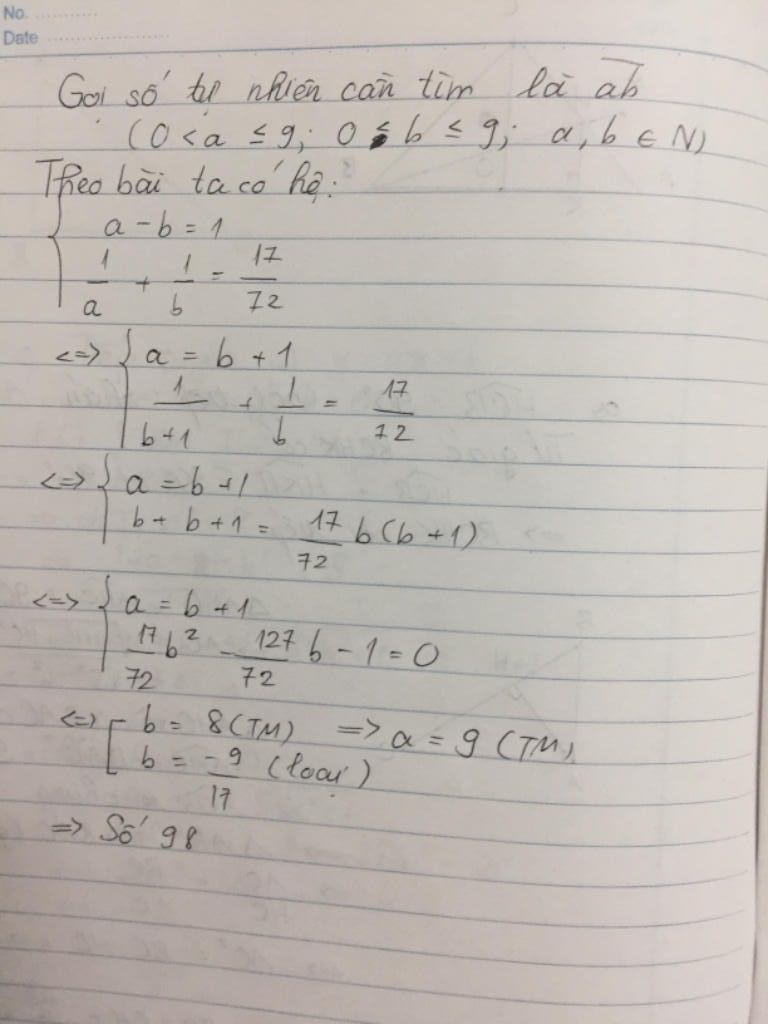 No. ............
Date ........................
Gọi số tự nhiên cần tìm là ab̅
(0 < a ≤ 9; 0 ≤ b ≤ 9; a, b ∈ N)
Theo bài ta có hệ:
{ a - b = 1
1/a + 1/b = 17/72
<=> { a = b + 1
1/(b+1) + 1/b = 17/72
<=> { a = b + 1
b + b + 1 = 17/72 b(b + 1)
<=> { a = b + 1
17/72 b² - 127/72 b - 1 = 0
<=> [ b = 8 (TM) => a = 9 (TM)
b = -9/17 (loại)
=> Số 98